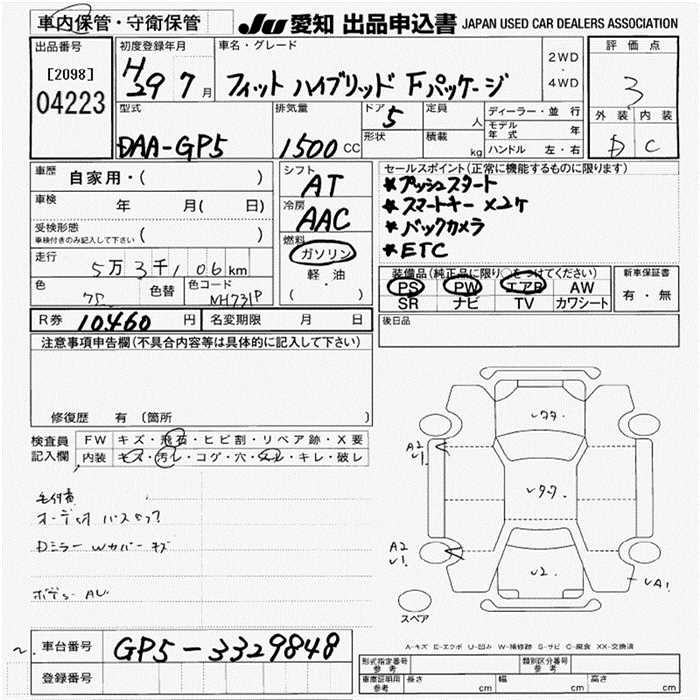 車内保管・守衛保管
JU 愛知 出品申込書 JAPAN USED CAR DEALERS ASSOCIATION
出品番号
[2098]
04223
初度登録年月
H29 7月
車名・グレード
フィット ハイブリッド Fパッケージ
2WD
・
4WD
評価点
3
外装 内装
D C
型式
DAA-GP5
排気量
1500 CC
ドア 5
形状
定員 人
積載 kg
ディーラー・並行
モデル年式 年
ハンドル 左・右
車歴 自家用・( )
車検 年 月( 日)
受検形態
車検付きのみ記入して下さい ( )
走行 5万3千106km
色 色替 色コード NH731P
シフト
AT
冷房
AAC
燃料
ガソリン
軽・油
( )
セールスポイント(正常に機能するものに限ります)
*プッシュスタート
*スマートキー ×2ケ
*バックカメラ
*ETC
装備品(純正品に限り○をつけてください)
PS PW エアB AW
SR ナビ TV カワシート
新車保証書
有・無
R券 10460円 名変期限 月 日
後日品
注意事項申告欄(不具合内容等は具体的に記入して下さい)
修復歴 有 (箇所
検査員記入欄
FW キズ・飛石・ヒビ割・リペア跡・X要
内装 キズ・汚レ・コゲ・穴・スレ・キレ・破レ
Dミラー Wカバー キズ
A2
U1
A2
U1
U2
UA1
スペア
A-キズ E-エクボ U-凹み W-補修跡 S-サビ C-腐食 XX-交換済
車台番号 GP5-3329848
登録番号
形式指定番号 参考
類別区分番号 参考
車庫証明用 参考 長さ cm 幅 cm 高さ cm